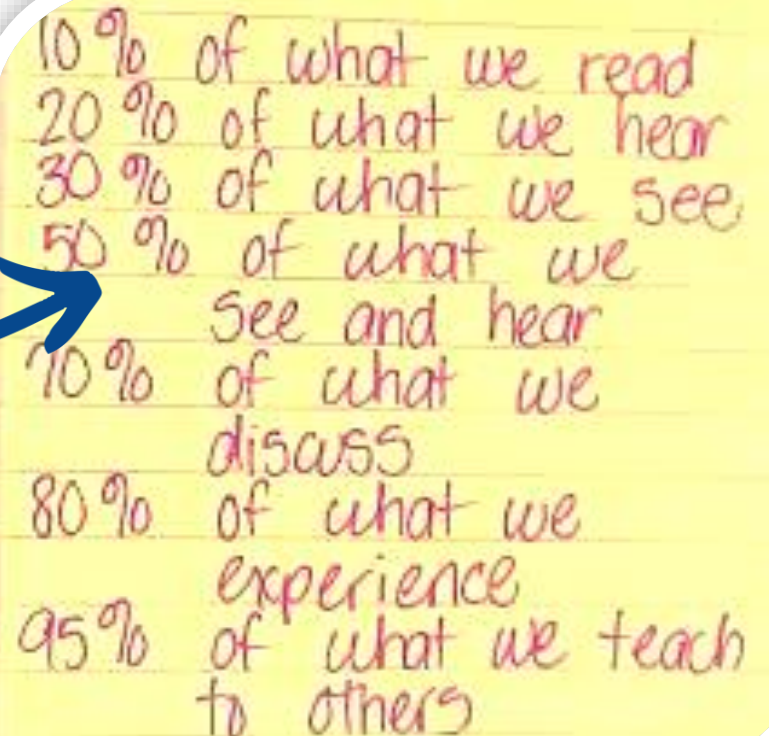 10% of what we read
20% of what we hear
30% of what we see
50% of what we
see and hear
70% of what we
discuss
80% of what we
experience
95% of what we teach
to others